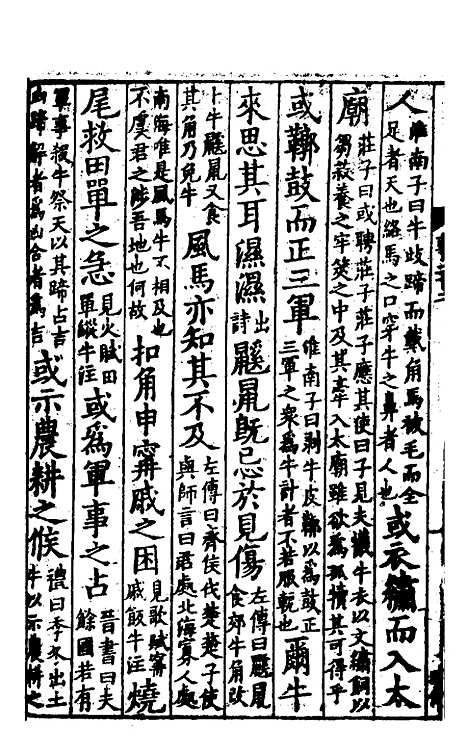 人淮南子曰牛歧蹄而戴角馬被毛而全足者天也絡馬之口穿牛之鼻者人也或衣繡而入太
廟莊子曰或聘莊子莊子應其使曰子見夫犧牛衣以文繡飼以芻菽養之牢筴之中及其牽入太廟雖欲為孤犢其可得乎
或鞹鼓而正三軍淮南子曰剥牛皮鞹以為鼓正三軍之衆為牛計者不若服軛也爾牛
來思其耳濕濕出詩鼷鼠既忌於見傷左傳曰鼷鼠食郊牛角改
卜牛鼷鼠又食其角乃免牛風馬亦知其不及左傳曰齊侯伐楚楚子使與師言曰君處北海寡人處
南海唯是風馬牛不相及也不虞君之涉吾地也何故扣角申甯戚之困見歌賦甯戚飯牛注燒
尾救田單之急見火賦田單縱牛注或為軍事之占晉書曰夫餘國若有
軍事殺牛祭天以其蹄占吉凶蹄解者為凶合者為吉或示農耕之候禮曰季冬出土牛以示農耕之